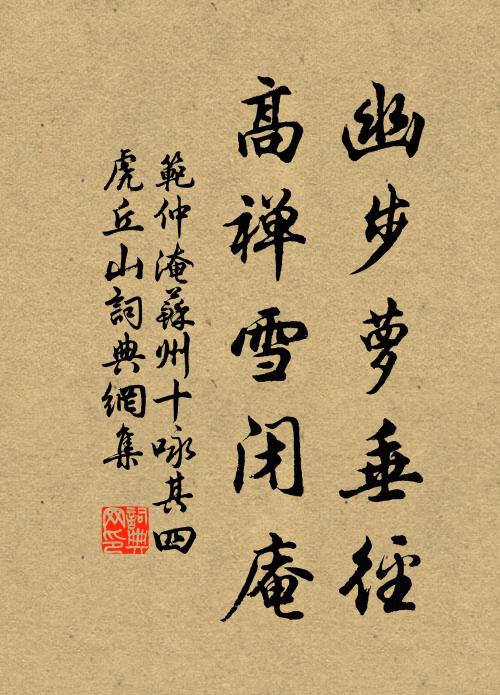 幽步萝垂径
高禅雪闭庵
範仲淹蘇州十咏其四
虎丘山詞典網集
詞典网印